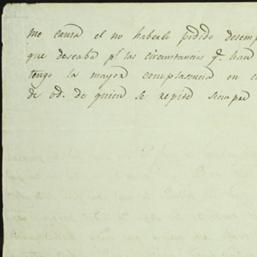 me causa el no haberlo podido desemp
que deseaba pr. las circunstancias q. han
tengo la mayor complacencia en
de vd. de quien se repite siempre